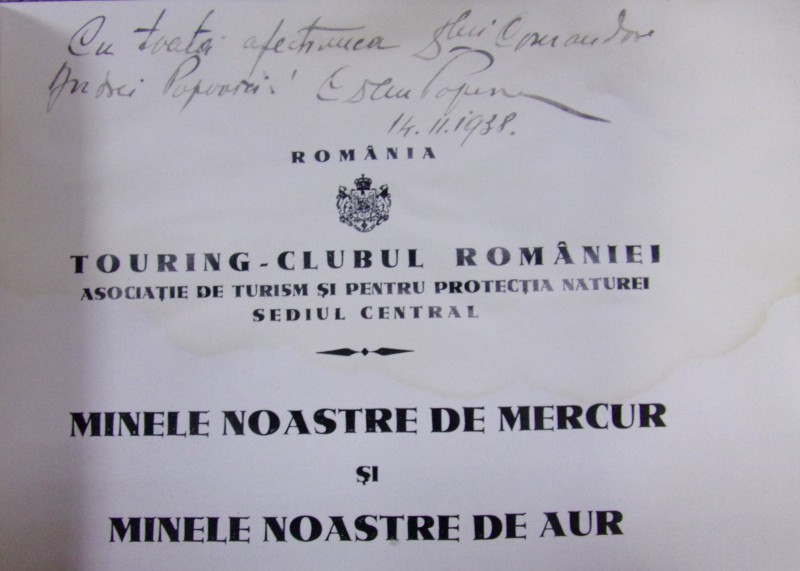 Cu toată afecțiunea Dlui Comandor
Andrei Popovici!
14.II.1938.
ROMÂNIA
TOURING-CLUBUL ROMÂNIEI
ASOCIAȚIE DE TURISM ȘI PENTRU PROTECȚIA NATUREI
SEDIUL CENTRAL
MINELE NOASTRE DE MERCUR
ȘI
MINELE NOASTRE DE AUR